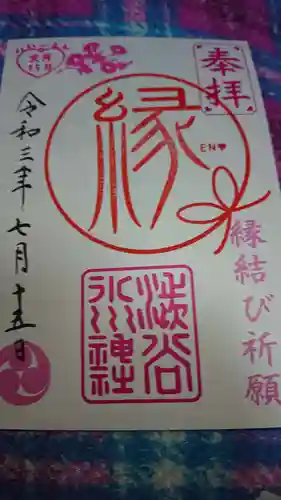 奉拝
縁
EN♥
縁結び祈願
渋谷
氷川神社
令和三年七月十五日